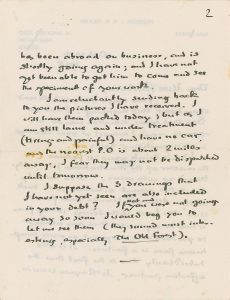 2
has been abroad on business, and is
shortly going again; and I have not
yet been able to get him to come and see
the specimens of your work.
I am reluctantly sending back
to you the pictures I have received. I
will have them packed today; but as I
am still lame and under treatment
(tiring and painful) and have no car
and the nearest P.O is about 2 miles
away, I fear they may not be dispatched
until tomorrow.
I suppose the 3 drawings that
I have not yet seen are also included
in your debt? If you were not going
away so soon I would beg you to
let me see them (they sound most inter-
esting, especially The Old Forest).